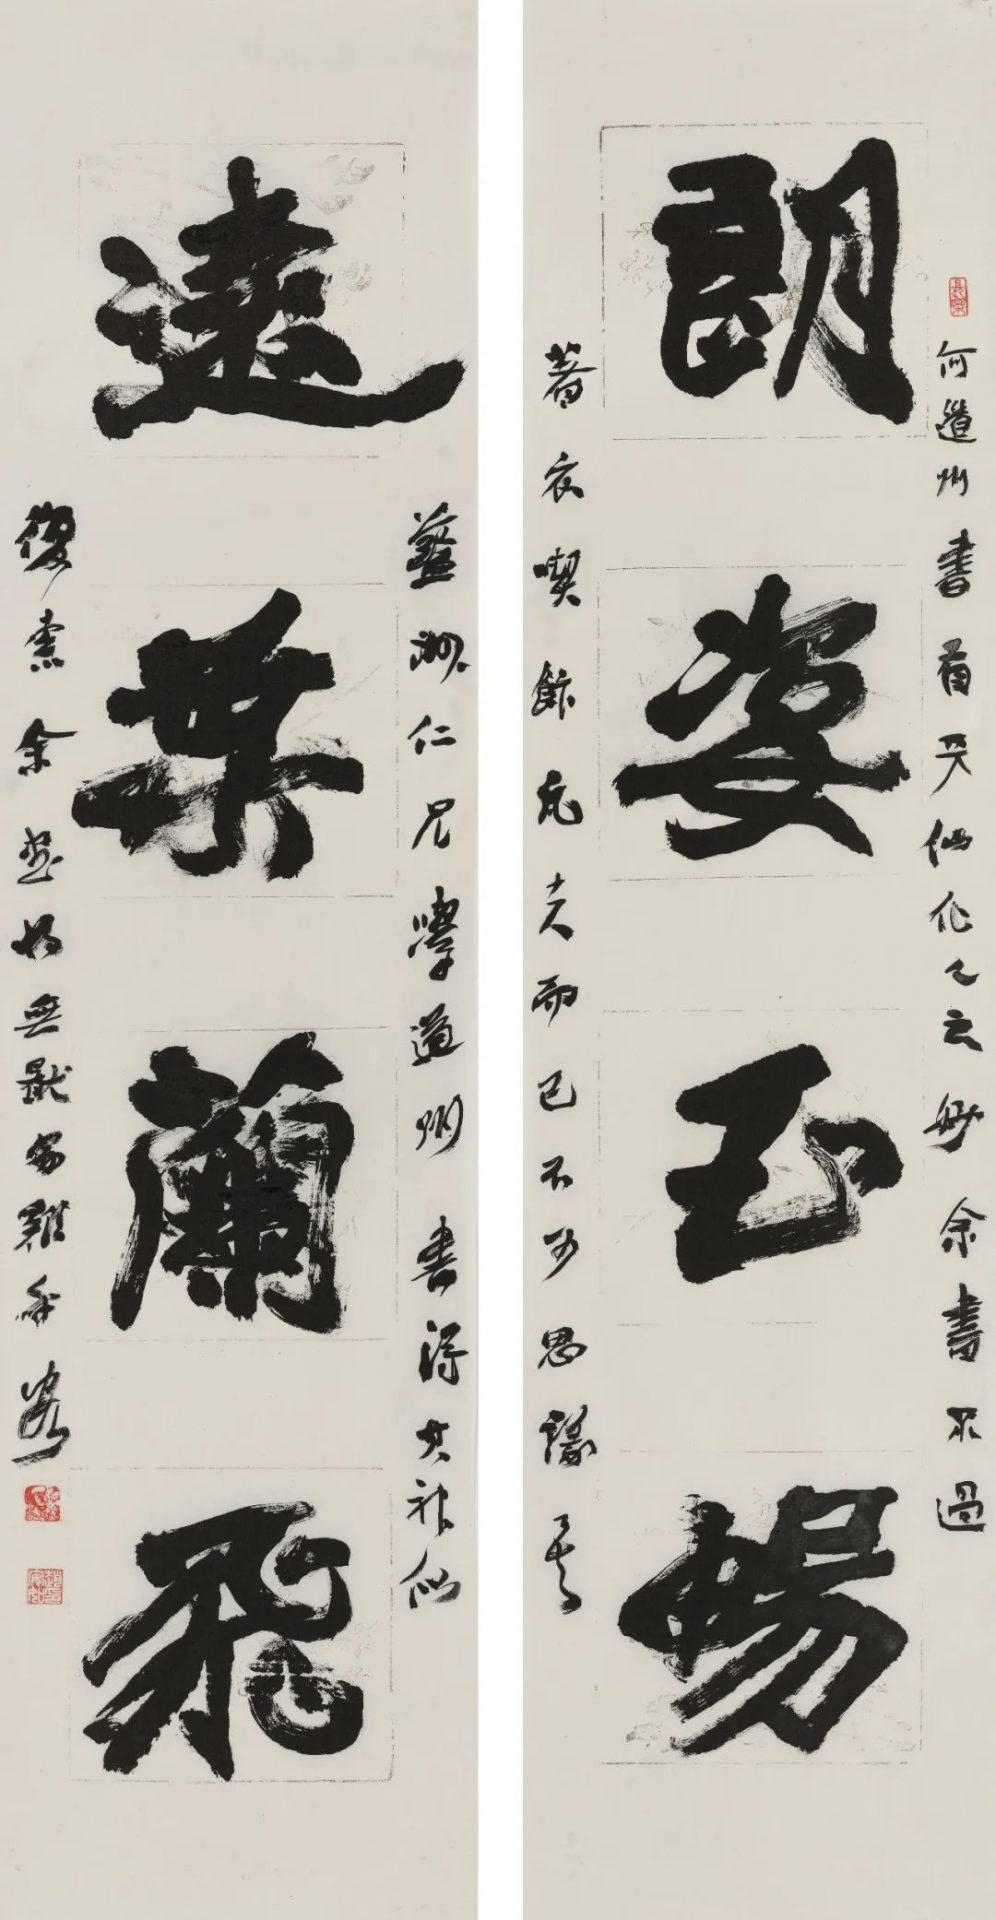 朗姿玉暢
何道州書有天仙化人之妙余書不過
著衣喫飯凡夫而已不可思議
遠葉蘭飛
仁兄學道州書得其神似
復索余書無厭家雞